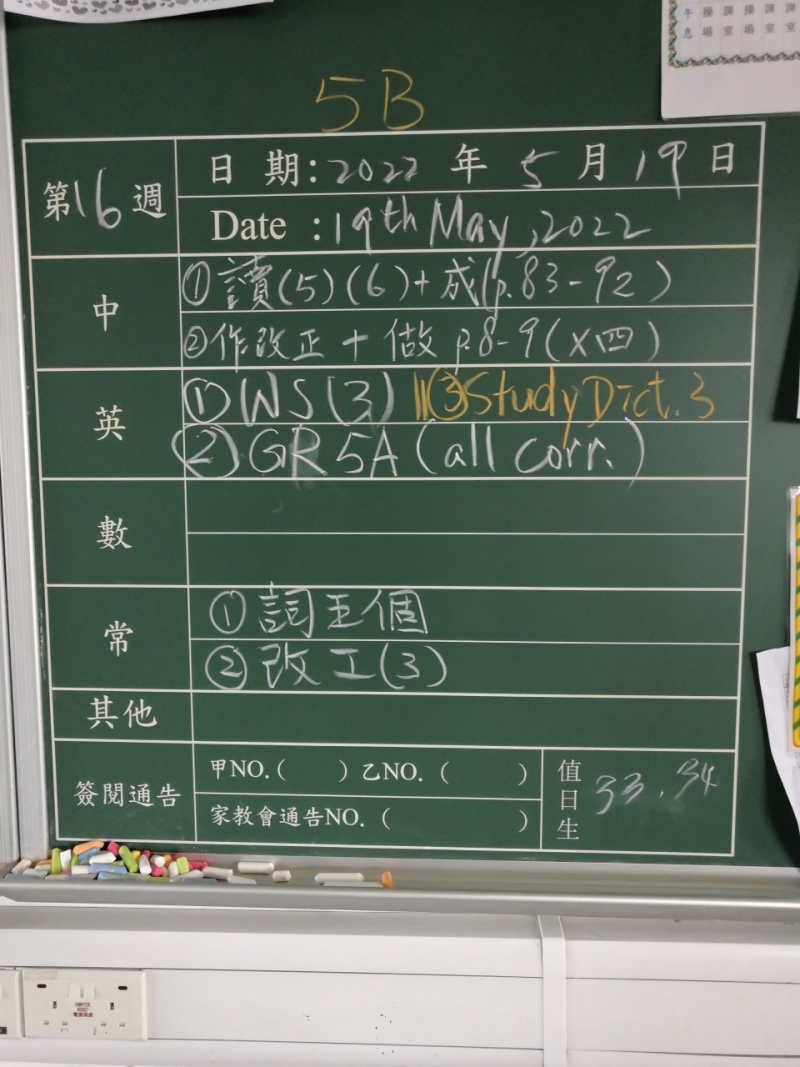 5B
第16週
日 期：2022 年 5 月 19 日
Date : 19th May, 2022
中
① 讀(5)(6)+成(p.83-92)
② 作改正 + 做 p.8-9(X四)
英
① WS(3) || ③ Study Dict. 3
② GR 5A (all corr.)
數
常
① 詞五個
② 改工(3)
其他
簽閱通告
甲NO.（ ）乙NO.（ ）
家教會通告NO.（ ）
值日生
33. 34
午 操 課 操 課 課
息 場 室 場 室 室